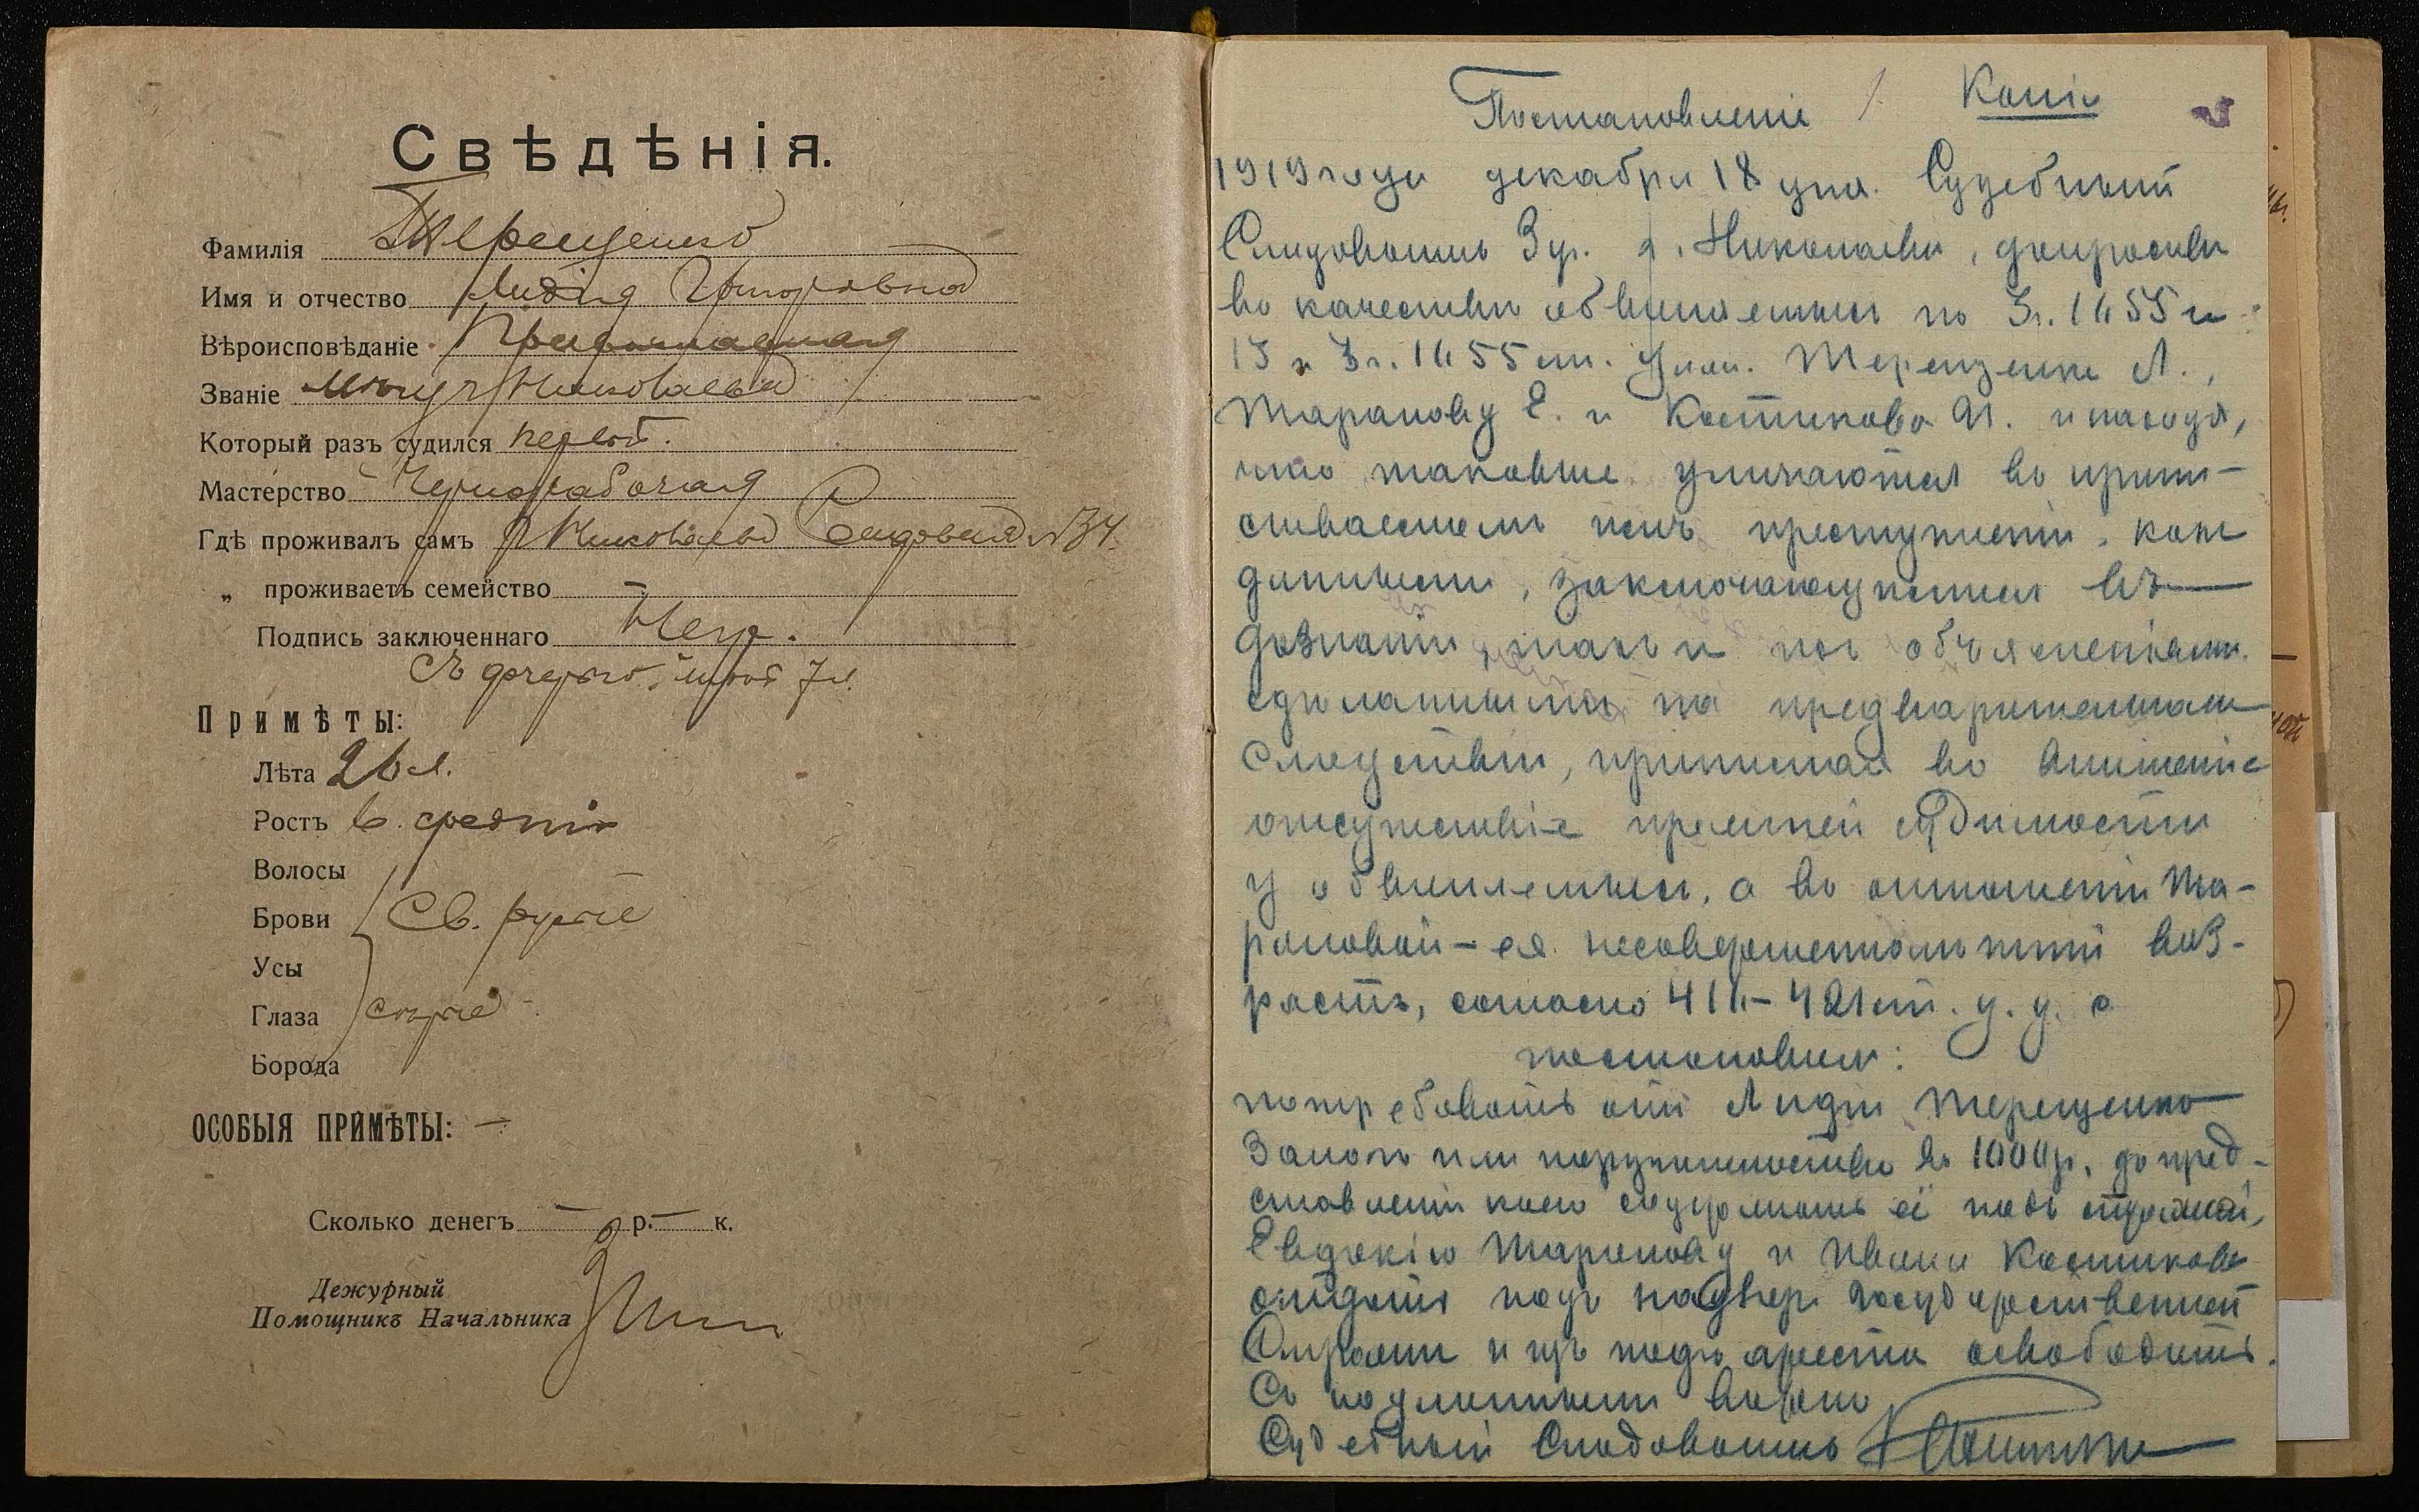 Свѣдѣнія.
Фамилія Терещенко
Имя и отчество Лидія Григорьевна
Вѣроисповѣданіе Православная
Званіе Николаева
Который разъ судился первый.
Мастерство Чернорабочая
Гдѣ проживалъ самъ г. Николаевъ Садовая № 34.
„ проживаетъ семейство —
Подпись заключеннаго Негр.
Съ дочерью 7 л.
Примѣты:
Лѣта 26 л.
Ростъ в. средній
Волосы
Брови Св. русые
Усы
Глаза сѣрые
Борода
ОСОБЫЯ ПРИМѢТЫ: —
Сколько денегъ — р. — к.
Дежурный
Помощникъ Начальника
Копія
Постановленіе
1919 года декабря 18 дня. Судебный
Слѣдователь 3 у. г. Николаева, допросивъ
въ качествѣ обвиняемыхъ по 3 ч. 1655 и
13 и 3 ч. 1655 ст. Улож. Терещенко Л.,
Таранову Е. и Костикова И. и находя,
что таковые уличаются въ припи-
сываемомъ имъ преступленіи, какъ
данными, заключающимися въ
дознаніи, такъ и ихъ объясненіями
сдѣланными на предварительномъ
слѣдствіи, принимая во вниманіе
отсутствіе прежней судимости
у обвиняемыхъ, а въ отношеніи Та-
рановой — ея несовершеннолѣтній воз-
растъ, согласно 416 - 421 ст. у. у. с.
постановилъ:
потребовать отъ Лидіи Терещенко
залогъ или поручительство въ 1000 р., до пред-
ставленія коего содержать её подъ стражей,
Евдокію Таранову и Ивана Костикова
отдать подъ надзоръ Государственной
Стражи и изъ подъ ареста освободить.
Съ подлиннымъ вѣрно
Судебный Слѣдователь